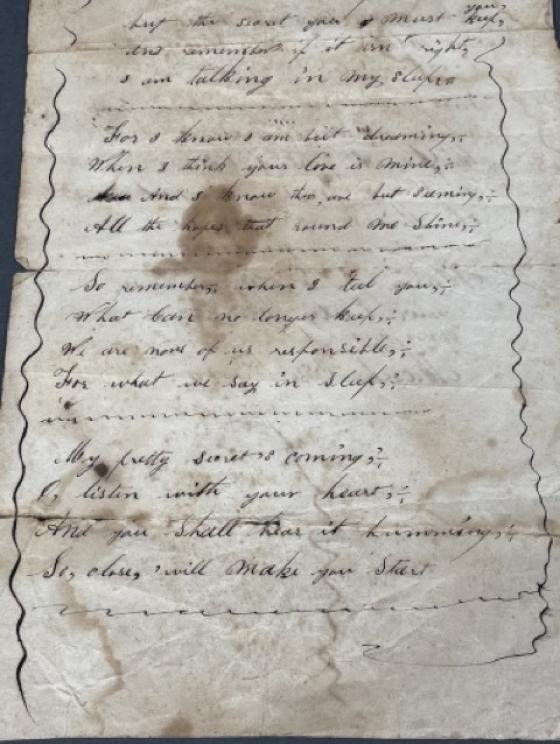 but the secret you must keep,
and remember if it isn't right,
I am talking in my sleep
For I know I am but dreaming,
When I think your love is mine,
And I know they are but seeming,
All the hopes that round me shine,
So remember, when I tell you,
What can no longer keep,
We are none of us responsible,
For what we say in sleep,
My pretty secret's coming,
O, listen with your heart,
And you shall hear it humming,
So, close, 'twill make you start